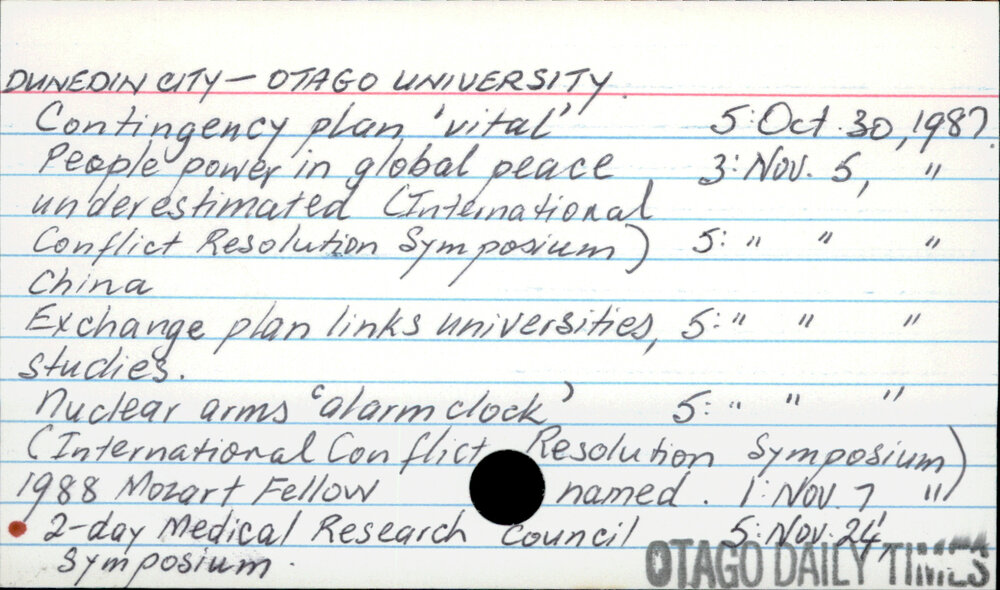 DUNEDIN CITY — OTAGO UNIVERSITY.
Contingency plan 'vital' 5: Oct. 30, 1987.
People power in global peace 3: Nov. 5, "
underestimated (International
Conflict Resolution Symposium) 5: " " "
China
Exchange plan links universities, 5: " " "
studies.
Nuclear arms 'alarm clock' 5: " " "
(International Conflict Resolution Symposium)
1988 Mozart Fellow named. 1: Nov. 7, "
2-day Medical Research Council 5: Nov. 24, "
Symposium.
OTAGO DAILY TIMES